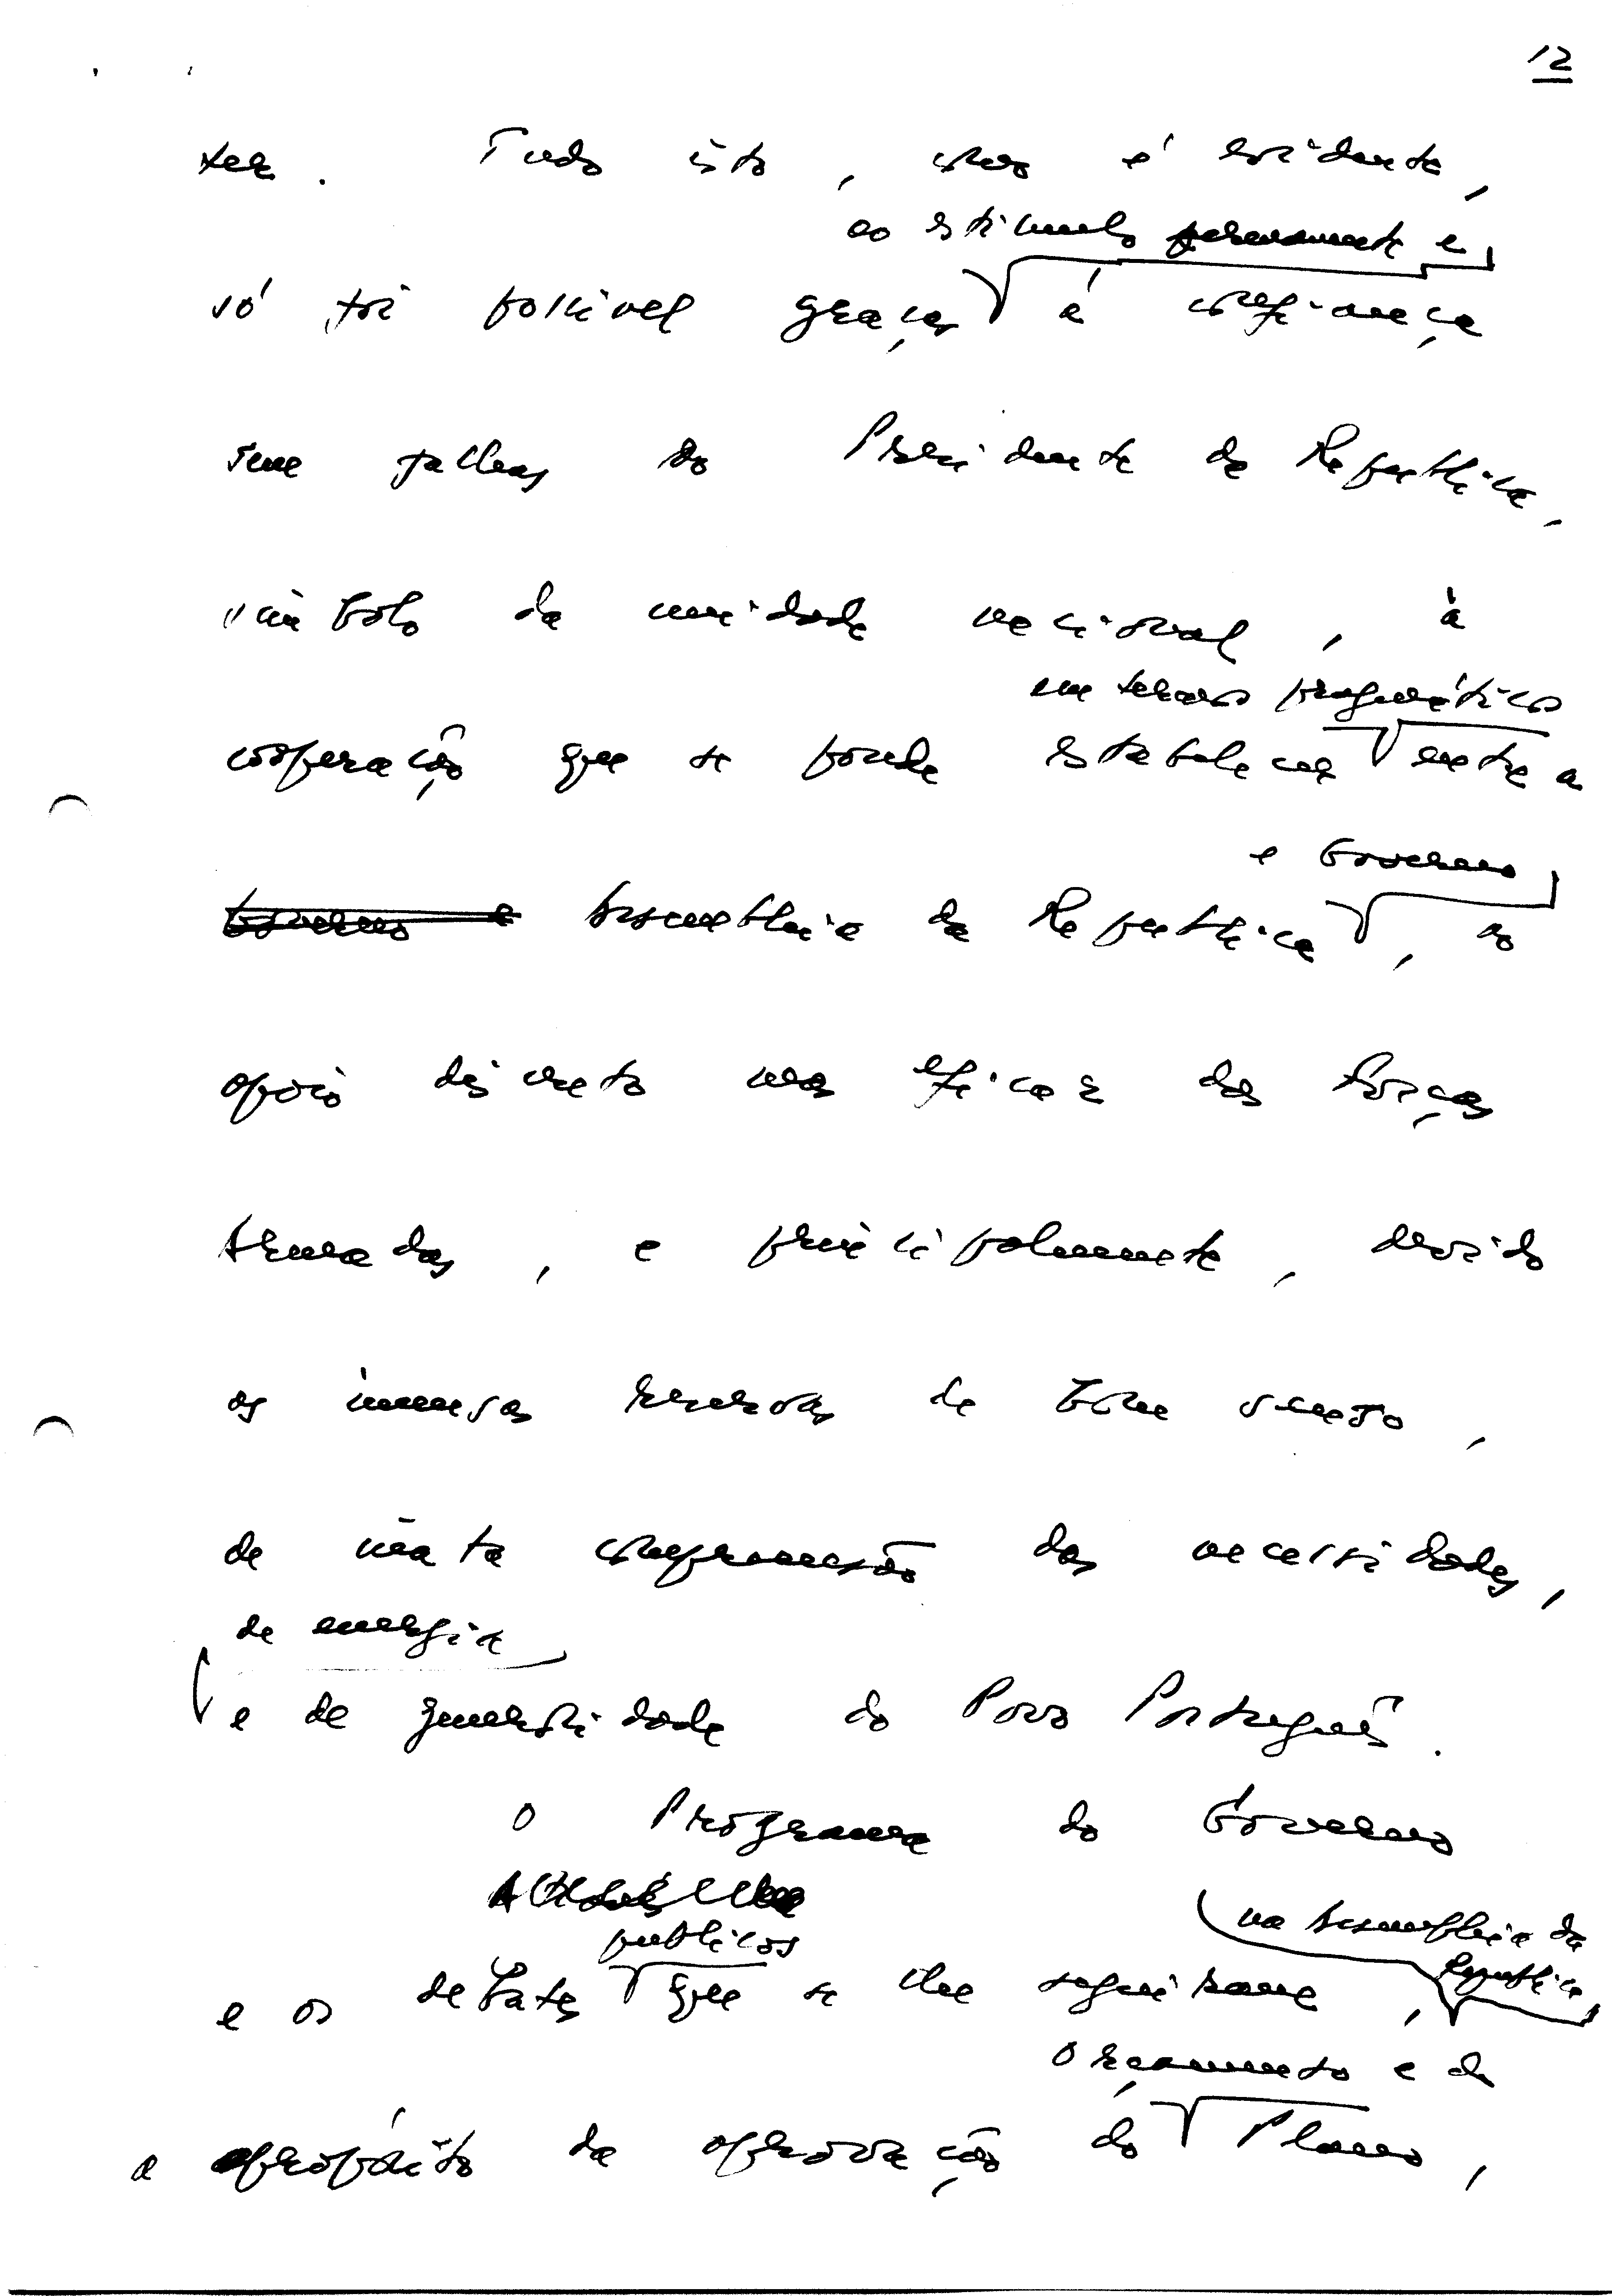 12
ter. Tudo isto, como é evidente,
ao estímulo permanente e
só foi possível graças à confiança
sem falhas do Presidente da República,
símbolo da unidade nacional, à
em termos pragmáticos
cooperação que se pôude estabelecer entre a
e Governo
Governo e Assembleia da República, ao
apoio discreto mas eficaz das Forças
Armadas, e principalmente, devido
às imensas reservas de bom senso,
de inata compreensão das necessidades,
de energia
e de generosidade do Povo Português.
O Programa do Governo
na Assembleia da
públicos
República,
e os debates que se lhe seguiram,
Orçamento e do
a propósito da aprovação do Plano,